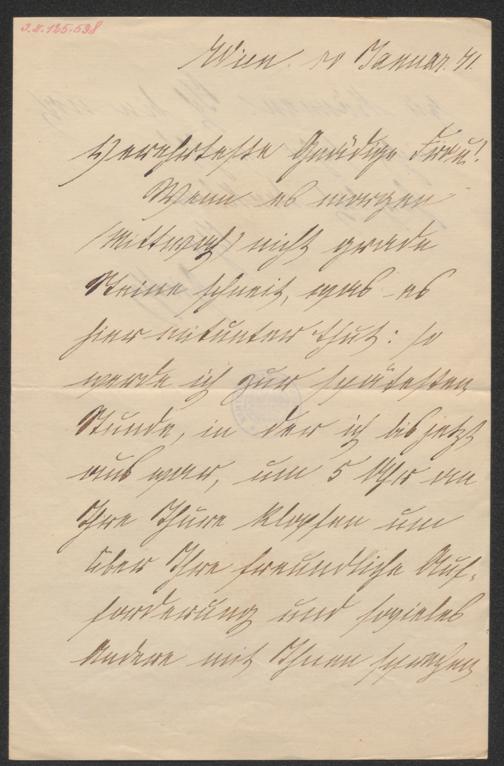 J.N. 125.538
Wien. Januar. 71.
Verehrteste Gnädige Frau!
Wenn es morgen
(Mittwoch) nicht grade
Steine schneit, was es
hier mitunter thut: so
werde ich zur spätesten
Stunde, in der ich bis jetzt
aus war, um 5 Uhr an
Ihre Thüre klopfen um
über Ihre freundliche Auf-
forderung und sovieles
Andere mit Ihnen sprechen